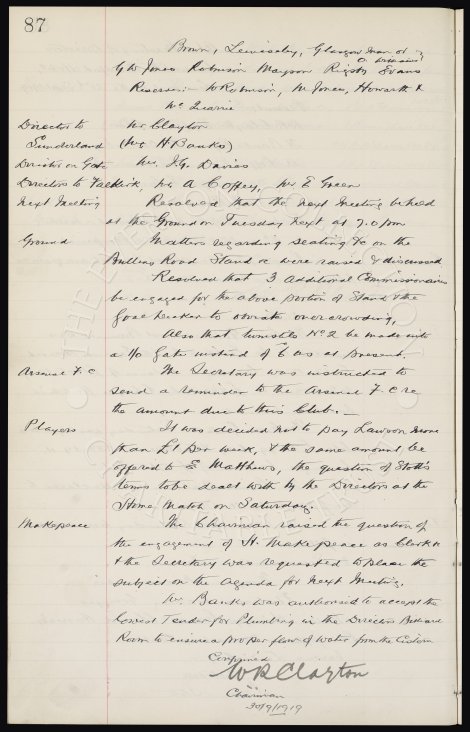 87
Brown, Glasgow man or
or Weaver
G W Jones Robinson Mayson Rigsby Evans
Reserves:- W Robinson, W Jones, Howarth &
Mc
Director to Mr Clayton
Sunderland (Mr H Banks)
Director on Gate Mr. J.G. Davies
Directors to Falkirk, Mr A Coffey, Mr E Green
Next Meeting Resolved that the next Meeting be held
at the Ground on Tuesday next at 7.0 pm
Ground Matters regarding seating &c on the
Bullens Road Stand &c were raised & discussed
Resolved that 3 additional Commissionaires
be engaged for the above portion of Stand & the
Goal to obviate overcrowding,
Also that turnstile No 2 be made into
a 1/0 Gate instead of as at present.
Arsenal F.C The Secretary was instructed to
send a reminder to the Arsenal F.C re
the amount due to this Club. —
Players It was decided not to pay Lawson more
than £1 per week, & the same amount be
offered to E Matthews, the question of
terms to be dealt with by the Directors at the
Home Match on Saturday.
Makepeace The Chairman raised the question of
the engagement of H. Makepeace as Clerk &c
& the Secretary was requested to place the
subject on the Agenda for next Meeting.
Mr Banks was authorised to accept the
lowest Tender for Plumbing in the Directors
Room to ensure a proper flow of water from the Cistern
Confirmed
W R Clayton
Chairman
30/9/1919